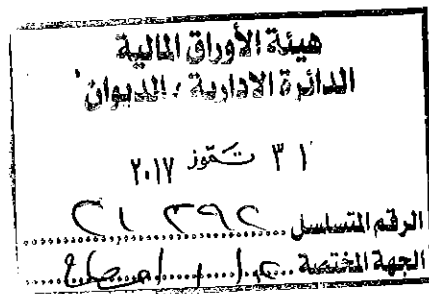 هيئة الأوراق المالية
الدائرة الادارية ، الديوان
٣١ تموز ٢٠١٧
الرقم المتسلسل
الجهة المختصة